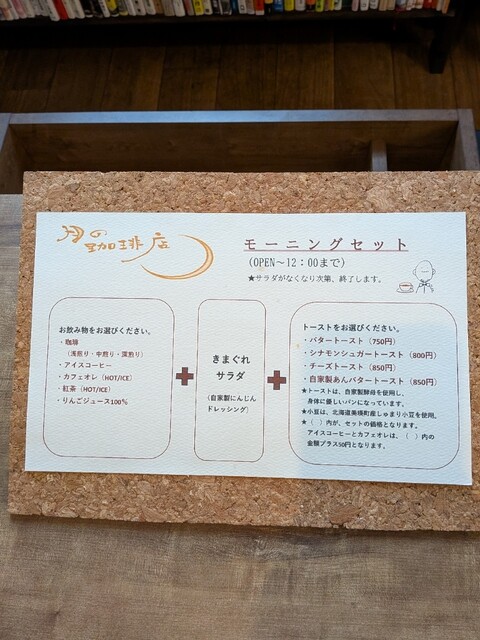 月の
珈琲店
モーニングセット
(OPEN～12：00まで)
★サラダがなくなり次第、終了します。
お飲み物をお選びください。
・珈琲
（浅煎り・中煎り・深煎り）
・アイスコーヒー
・カフェオレ（HOT/ICE）
・紅茶（HOT/ICE）
・りんごジュース100％
＋
きまぐれ
サラダ
（自家製にんじん
ドレッシング）
＋
トーストをお選びください。
・バタートースト（750円）
・シナモンシュガートースト（800円）
・チーズトースト（850円）
・自家製あんバタートースト（850円）
★トーストは、自家製酵母を使用し、
身体に優しいパンになっています。
★小豆は、北海道美瑛町産しゅまり小豆を使用。
★（　）内が、セットの価格となります。
アイスコーヒーとカフェオレは、（　）内の
金額プラス50円となります。